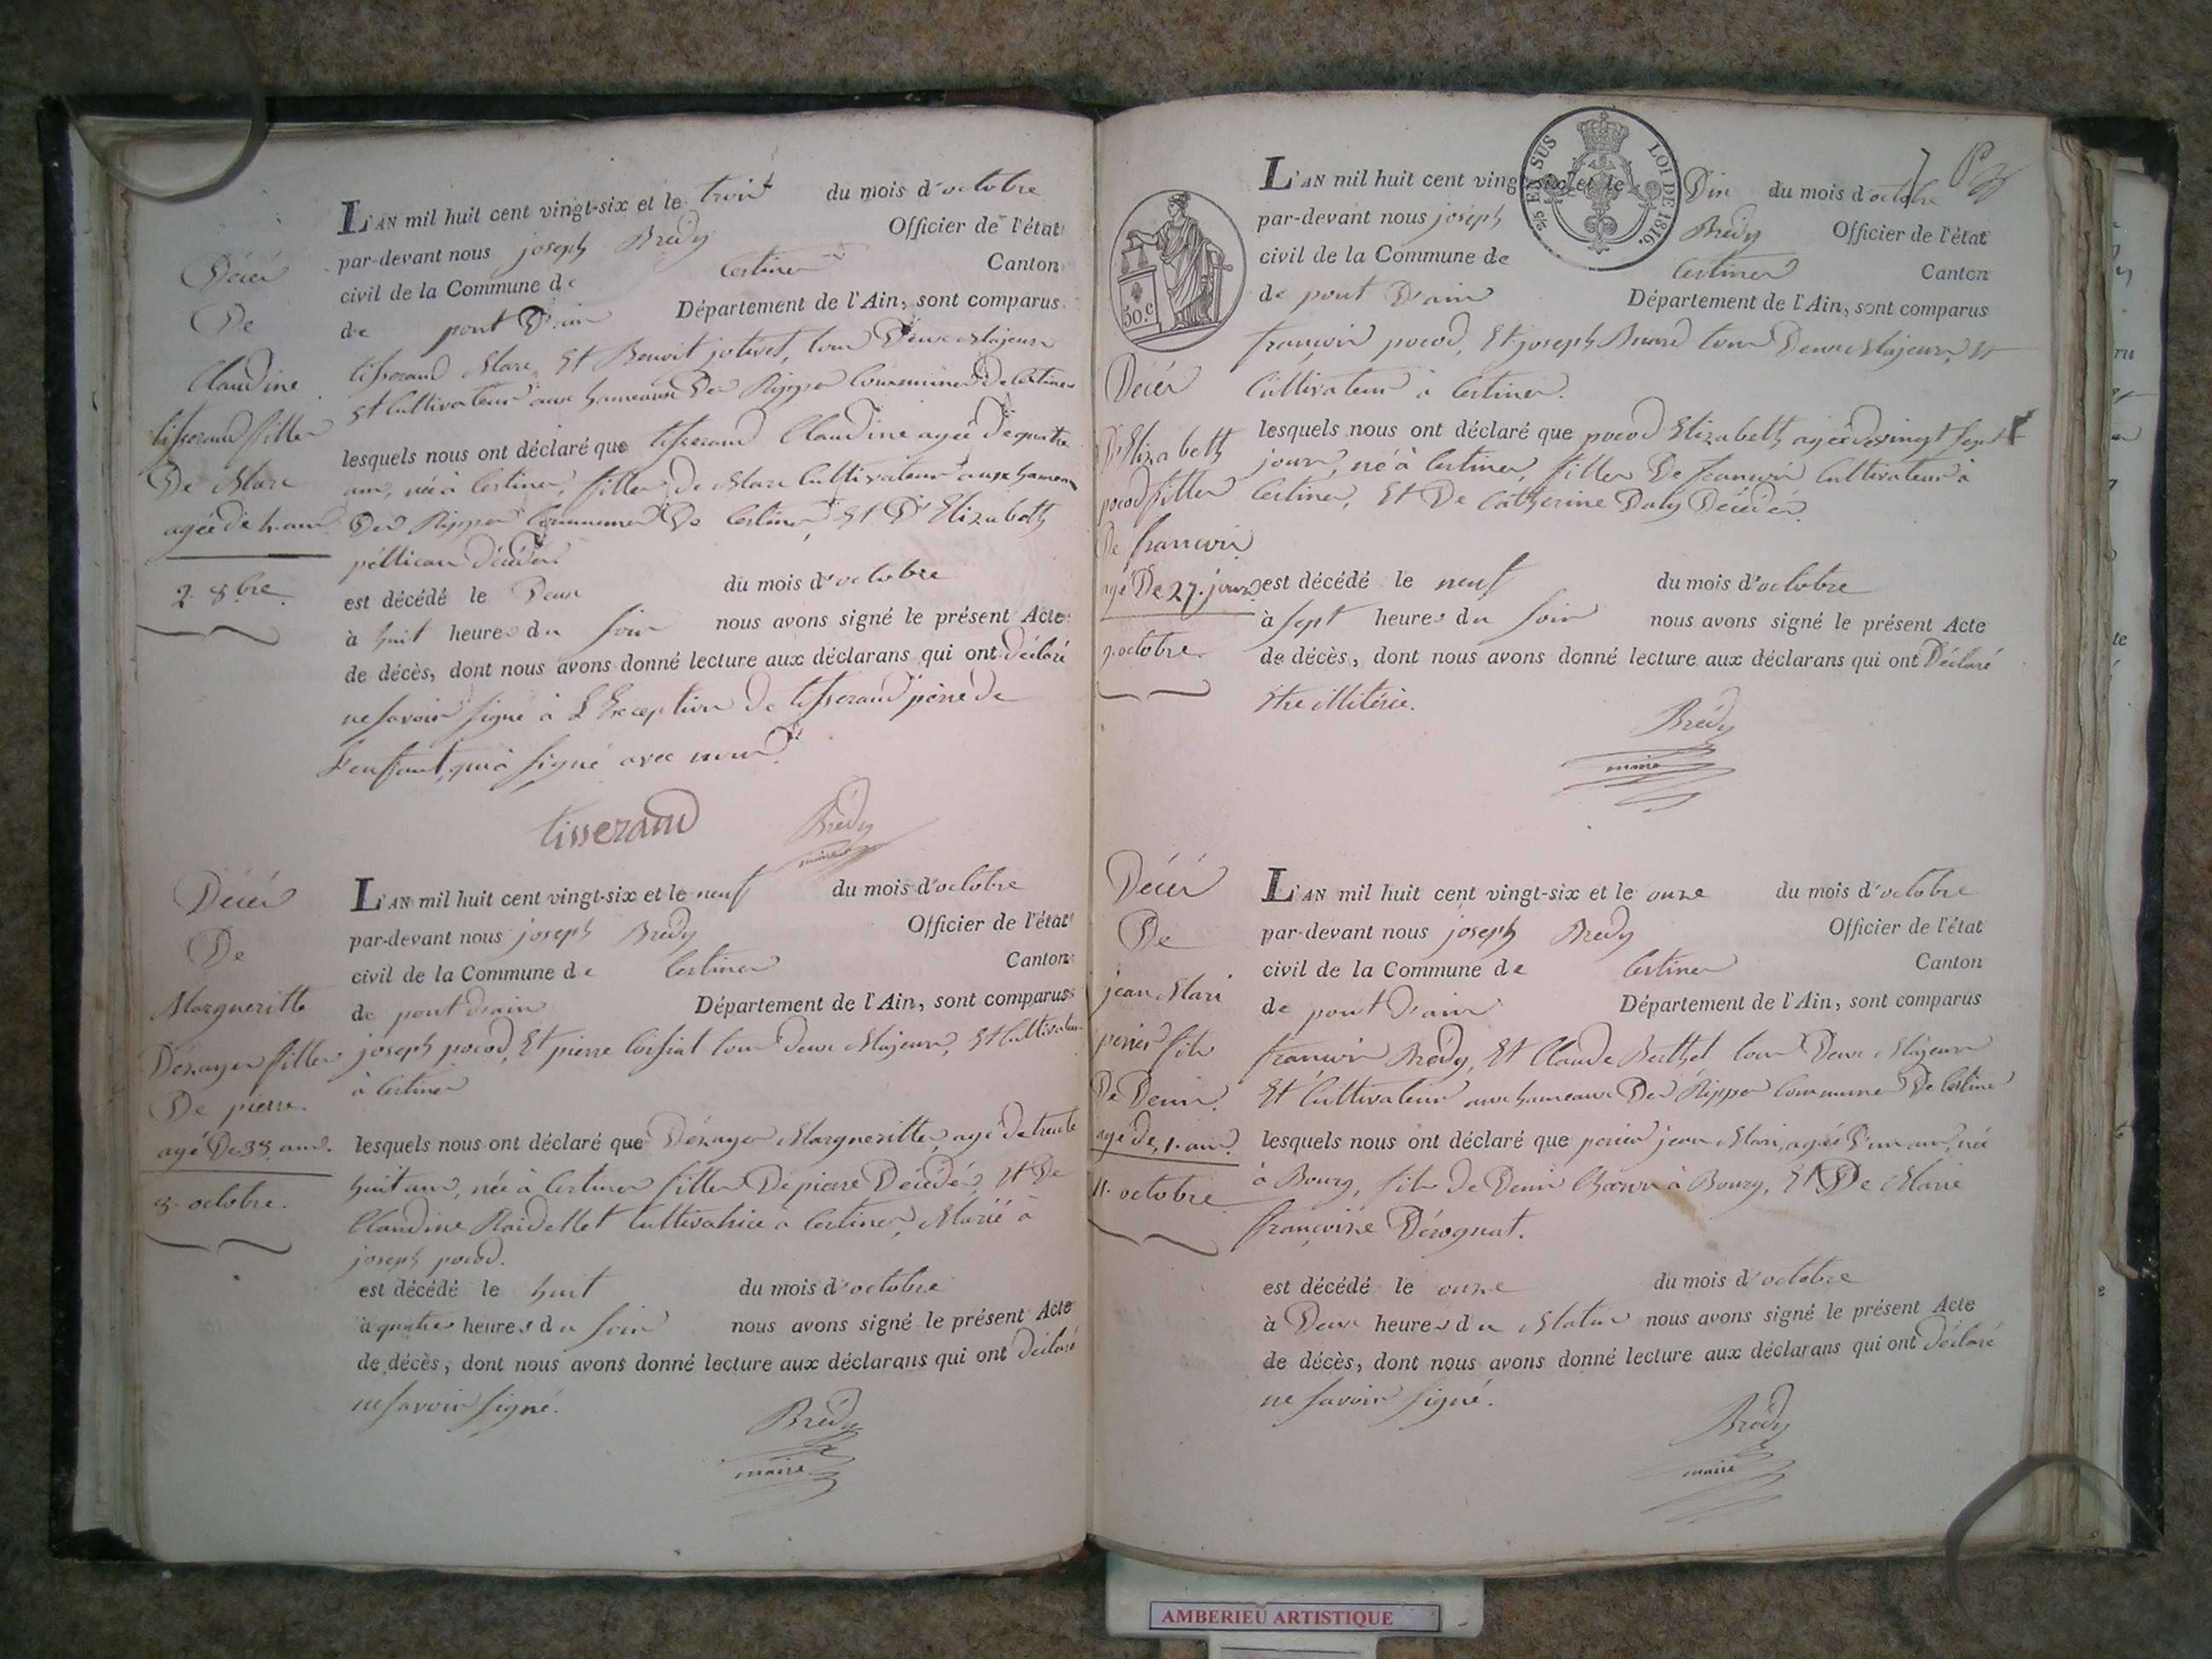 Décés
De
Claudine
tisserand fille
De Marc
agée de 4. ans
2. 8bre.
L'AN mil huit cent vingt-six et le trois du mois d'octobre
par-devant nous joseph Bredy Officier de l'état
civil de la Commune de Certines Canton
de pont D'ain Département de l'Ain, sont comparus
tisserand Marc, Et Benoit jolivet, tous Deux Majeurs
Et Cultivateurs aux hameaux Des Rippes Commune De Certines
lesquels nous ont déclaré que tisserand Claudine agée De quatre
ans, née à Certines, fille de Marc Cultivateur aux hameau
Des Rippes Commune De Certines, Et D'Elizabeth
péllican Décédés
est décédé le Deux du mois d'octobre
à huit heures du soir nous avons signé le présent Acte
de décès, dont nous avons donné lecture aux déclarans qui ont déclaré
ne savoir signé à L'Exception de tisserand père de
l'enffant, qui à signé avec nous.
tisserand Bredy
maire
Décés
De
Margueritte
Désayer fille
De pierre.
agé De 38 ans.
8. octobre.
L'AN mil huit cent vingt-six et le neuf du mois d'octobre
par-devant nous joseph Bredy Officier de l'état
civil de la Commune de Certines Canton
de pont d'ain Département de l'Ain, sont comparus
joseph pocod, Et pierre loissiat tous deux Majeurs, Et Cultivateurs
à Certines
lesquels nous ont déclaré que Désayer Margueritte, agé de trente
huit ans, née à Certines fille De pierre Décédé, Et De
Claudine Raidellet Cultivatrice à Certines, Marié à
joseph pocod.
est décédé le huit du mois d'octobre
à quatre heures du soir nous avons signé le présent Acte
de décès, dont nous avons donné lecture aux déclarans qui ont déclaré
ne savoir signé.
Bredy
maire
2/5 EN SUS LOI DE 1816.
50.c
Décés
D'Elizabeth
pocod fille
De françois
agé De 27. jours
9. octobre.
L'AN mil huit cent vingt-six et le Dix du mois d'octobre
par-devant nous joseph Bredy Officier de l'état
civil de la Commune de Certines Canton
de pont D'ain Département de l'Ain, sont comparus
françois pocod, Et joseph Buard tous Deux Majeurs, Et
Cultivateurs à Certines.
lesquels nous ont déclaré que pocod Elizabeth agée de vingt sept
jours, né à Certines, fille De françois Cultivateur à
Certines, Et De Catherine Daly Décédés.
est décédé le neuf du mois d'octobre
à sept heures du soir nous avons signé le présent Acte
de décès, dont nous avons donné lecture aux déclarans qui ont Déclaré
Etre illitérés.
Bredy
maire
Décés
De
jean Mari
perier fils
De Denis.
agé de, 1. ans.
11. octobre
L'AN mil huit cent vingt-six et le onze du mois d'octobre
par-devant nous joseph Bredy Officier de l'état
civil de la Commune de Certines Canton
de pont D'ain Département de l'Ain, sont comparus
françois Bredy, Et Claude Berthet tous Deux Majeurs
Et Cultivateurs aux hameaux Des Rippes Commune De Certines
lesquels nous ont déclaré que perier jean Mari, agés D'un ans, née
à Bourg, fils de Denis à Bourg, Et De Marie
françoise Dérognat.
est décédé le onze du mois d'octobre
à Deux heures du Matin nous avons signé le présent Acte
de décès, dont nous avons donné lecture aux déclarans qui ont déclaré
ne savoir signé.
Bredy
maire
AMBERIEU ARTISTIQUE